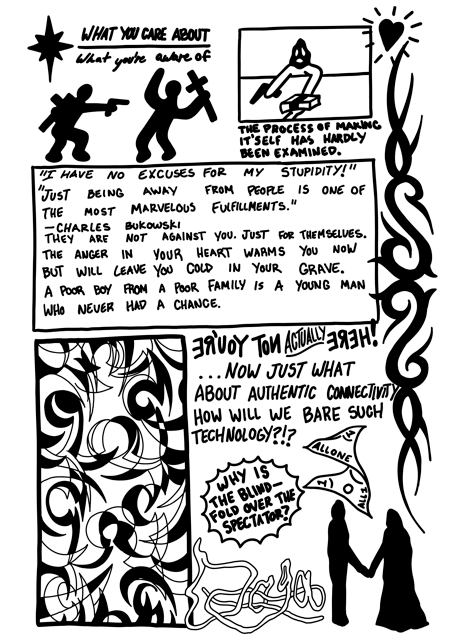 WHAT YOU CARE ABOUT
What you're aware of
THE PROCESS OF MAKING
IT'SELF HAS HARDLY
BEEN EXAMINED.
"I HAVE NO EXCUSES FOR MY STUPIDITY!"
"JUST BEING AWAY FROM PEOPLE IS ONE OF
THE MOST MARVELOUS FULFILLMENTS."
—CHARLES BUKOWSKI
THEY ARE NOT AGAINST YOU. JUST FOR THEMSELVES.
THE ANGER IN YOUR HEART WARMS YOU NOW
BUT WILL LEAVE YOU COLD IN YOUR GRAVE.
A POOR BOY FROM A POOR FAMILY IS A YOUNG MAN
WHO NEVER HAD A CHANCE.
YOU'RE NOT ACTUALLY HERE!
...NOW JUST WHAT
ABOUT AUTHENTIC CONNECTIVITY
HOW WILL WE BARE SUCH
TECHNOLOGY?!?
ALLONE
WHY IS
THE BLIND-
FOLD OVER THE
SPECTATOR?